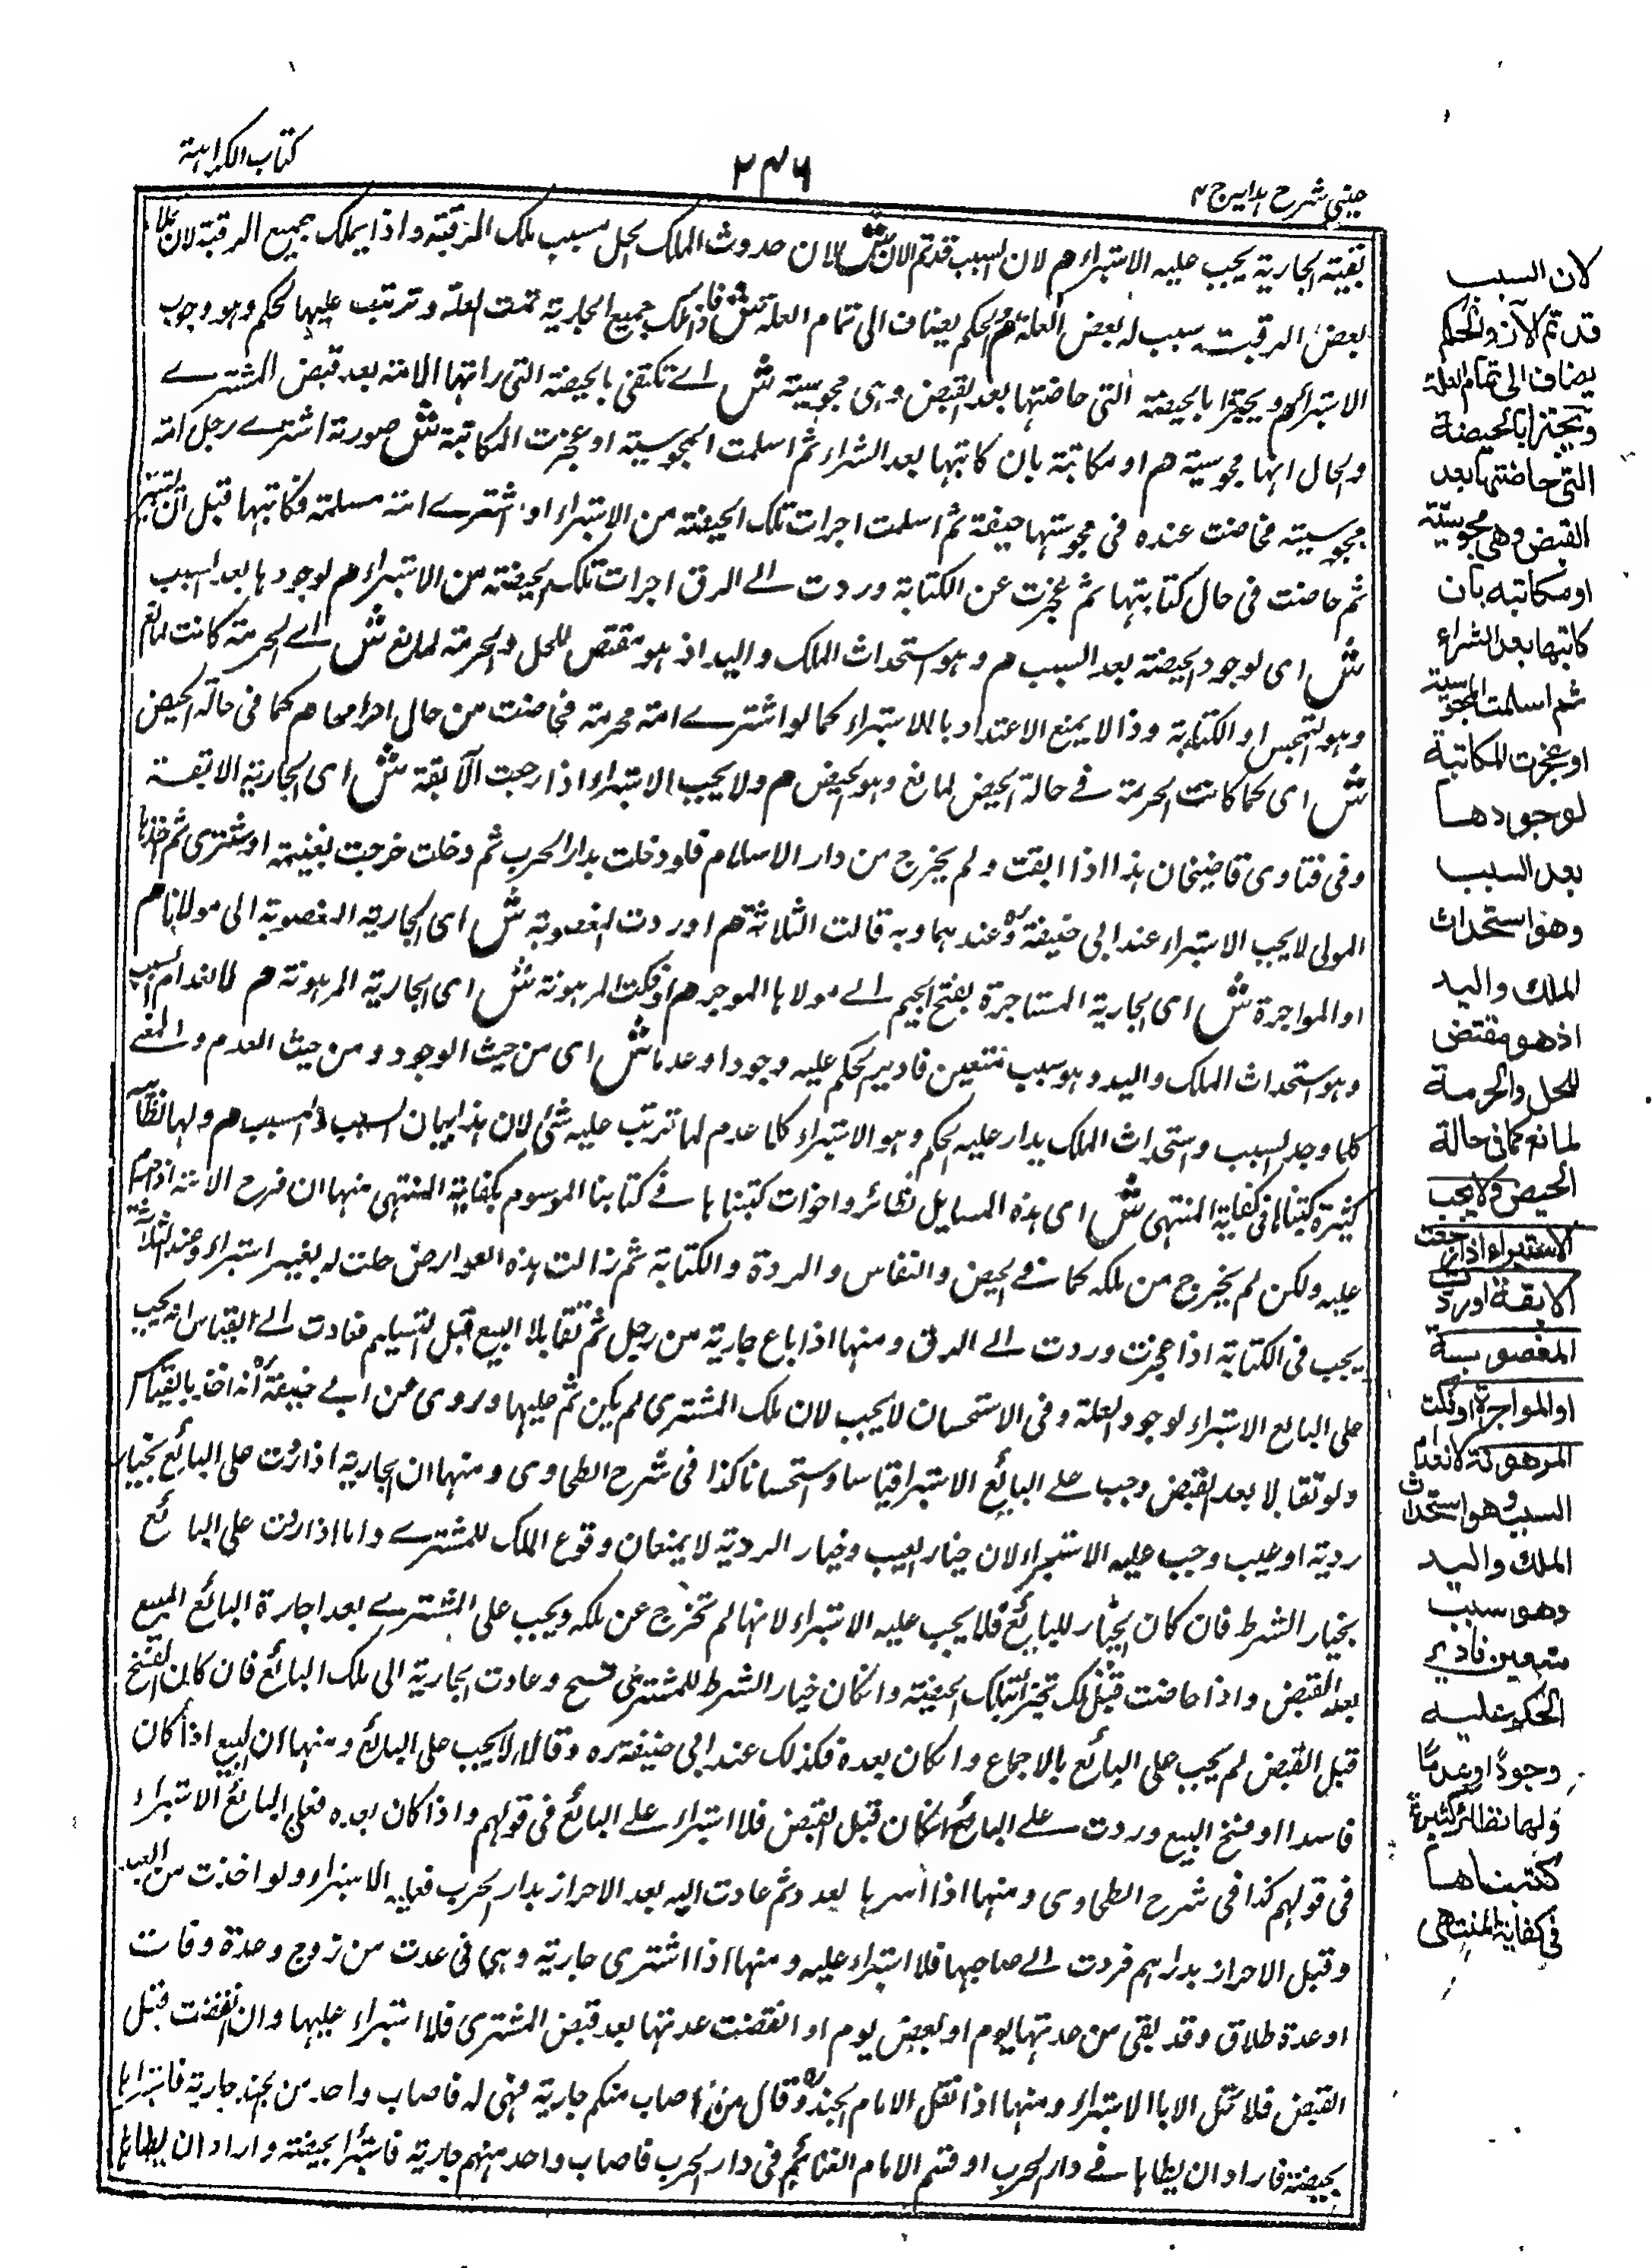 عيني شرح هدايہ ج ٤
٢٤٦
كتاب الكراهية
بقية الجارية يجب عليه الاستبراء هم لان السبب قد تم الان ش لان حدوث الملك لحل بسبب ملك الرقبة واذا يملك جميع الرقبة لان
بعض الرقبة سبب له بعض العلة هم والحكم يضاف الى تمام العلة ش فاذا ملك جميع الجارية تمت العلة وترتب عليها الحكم وهو وجوب
الاستبراء هم ويجتزأ بالحيضة التي حاضتها بعد القبض وهي مجوسية ش اے تكتفى بالحيضة التي راتها الامة بعد قبض المشترے
والحال انها مجوسية هم او مكاتبة بان كاتبها بعد الشراء ثم اسلمت المجوسية او عجزت المكاتبة ش صورته اشترے رجل امة
مجوسية فحاضت عنده في مجوسيتها حيضة ثم اسلمت اجزات تلك الحيضة من الاستبراء او اشترے امة مسلمة فكاتبها قبل ان يستبرئها
ثم حاضت في حال كتابتها ثم عجزت عن الكتابة وردت الے الرق اجزات تلك الحيضة من الاستبراء هم لوجودها بعد السبب
ش اى لوجود الحيضة بعد السبب هم وهو استحداث الملك واليد اذ هو مقتض للحل والحرمة لمانع ش اے الحرمة كانت لمانع
وهو التمجس او الكتابة وذا لا يمنع الاعتداد بالاستبراء كما لو اشترے امة محرمة فحاضت من حال احرامها هم كما في حالة الحيض
ش اى كما كانت الحرمة في حالة الحيض لمانع وهو الحيض هم ولا يجب الاستبراء اذا رجعت الآبقة ش اى الجارية الابقة
وفي فتاوى قاضيخان هذا اذا ابقت ولم يخرج من دار الاسلام فلو دخلت بدار الحرب ثم دخلت خرجت بغنيمة او شترى ثم اخذها
المولى لا يجب الاستبراء عند ابي حنيفة وعندهما وبه قالت الثلاثة هم او ردت المغصوبة ش اى الجارية المغصوبة الى مولاها هم
او المواجرة ش اى الجارية المستاجرة بفتح الجيم الے مولاها الموجر هم او فكت المرهونة ش اى الجارية المرهونة هم لانعدام السبب
وهو استحداث الملك واليد وهو سبب متعين فادير الحكم عليه وجودا وعدما ش اى من حيث الوجود ومن حيث العدم والمعنے
كلما وجد السبب واستحداث الملك يدار عليه الحكم وهو الاستبراء كلما عدم لما ترتب عليه شئ لان هذا بيان السبب والمسبب هم ولها نظائر
كثيرة كتبناها في كفاية المنتهى ش اى هذه المسايل نظائر واخوات كتبناها في كتابنا الموسوم بكفاية المنتهى منها ان فرج الامة اذا حرم
عليه ولكن لم يخرج من ملكه كما في الحيض والنفاس والردة والكتابة ثم زالت هذه العوارض حلت له بغير استبراء وعند الثلاثة
يجب في الكتابة اذا عجزت وردت الے الرق ومنها اذا باع جارية من رجل ثم تقايلا البيع قبل التسليم فعادت الے القياس انه يجب
على البايع الاستبراء لوجود العلة وفي الاستحسان لا يجب لان ملك المشترى لم يكن ثم عليها وروى عن ابے حنيفة انه اخذ بالقياس
ولو تقايلا بعد القبض وجب علے البائع الاستبراء قياسا واستحسانا كذا في شرح الطحاوى ومنها ان الجارية اذا ردت على البائع بخيار
رؤية او عيب وجب عليه الاستبراء لان خيار العيب وخيار الرؤية لا يمنعان وقوع الملك للمشترے واما اذا ردت على البائع
بخيار الشرط فان كان الخيار للبايع فلا يجب عليه الاستبراء لانها لم تخرج عن ملكه ويجب على المشترے بعد اجازة البائع البيع
بعد القبض واذا حاضت قبل ذلك تجتزأ بتلك الحيضة وانكان خيار الشرط للمشترى فسخ وعادت الجارية الى ملك البائع فان كان الفسخ
قبل القبض لم يجب على البائع بالاجماع وانكان بعده فكذلك عند ابي حنيفة ره وقالا لا يجب على البائع ومنها ان البيع اذا كان
فاسدا او فسخ البيع وردت علے البائع انكان قبل القبض فلا استبراء علے البائع في قولهم واذا كان بعده فعلى البائع الاستبراء
في قولهم كذا في شرح الطحاوى ومنها اذا اسرها العدو ثم عادت اليه بعد الاحراز بدار الحرب فعليه الاستبراء ولو اخذت من العبد
وقبل الاحراز بدارهم فردت الے صاحبها فلا استبراء عليه ومنها اذا اشترى جارية وهي في عدت من زوج وعدة وفات
او عدة طلاق وقد بقى من عدتها يوم او بعض يوم او انقضت عدتها بعد قبض المشترى فلا استبراء عليها وان انقضت قبل
القبض فلا تحل الا بالاستبراء ومنها اذا نفل الامام الجند وقال من اصاب منكم جارية فهى له فاصاب واحد من الجند جارية فاستبراها
بحيضة فاراد ان يطاها في دار الحرب او قسم الامام الغنائم في دار الحرب فاصاب واحد منهم جارية فاستبرأ بحيضة واراد ان يطاها
لان السبب
قد تم الآن والحكم
يضاف الى تمام العلة
ويجتزأ بالحيضة
التي حاضتها بعد
القبض وهي مجوسية
او مكاتبه بان
كاتبها بعد الشراء
ثم اسلمت المجوسية
او عجزت المكاتبة
لوجودها
بعد السبب
وهو استحداث
الملك واليد
اذ هو مقتض
للحل والحرمة
لمانع كما في حالة
الحيض ولا يجب
الاستبراء اذا رجعت
الابقة او ردت
المغصوبة
او المواجرة او فكت
المرهونة لانعدام
السبب وهو استحداث
الملك واليد
وهو سبب
متعين فادير
الحكم عليه
وجودًا وعدمًا
ولها نظائر كثيرة
كتبناها
في كفاية المنتهى